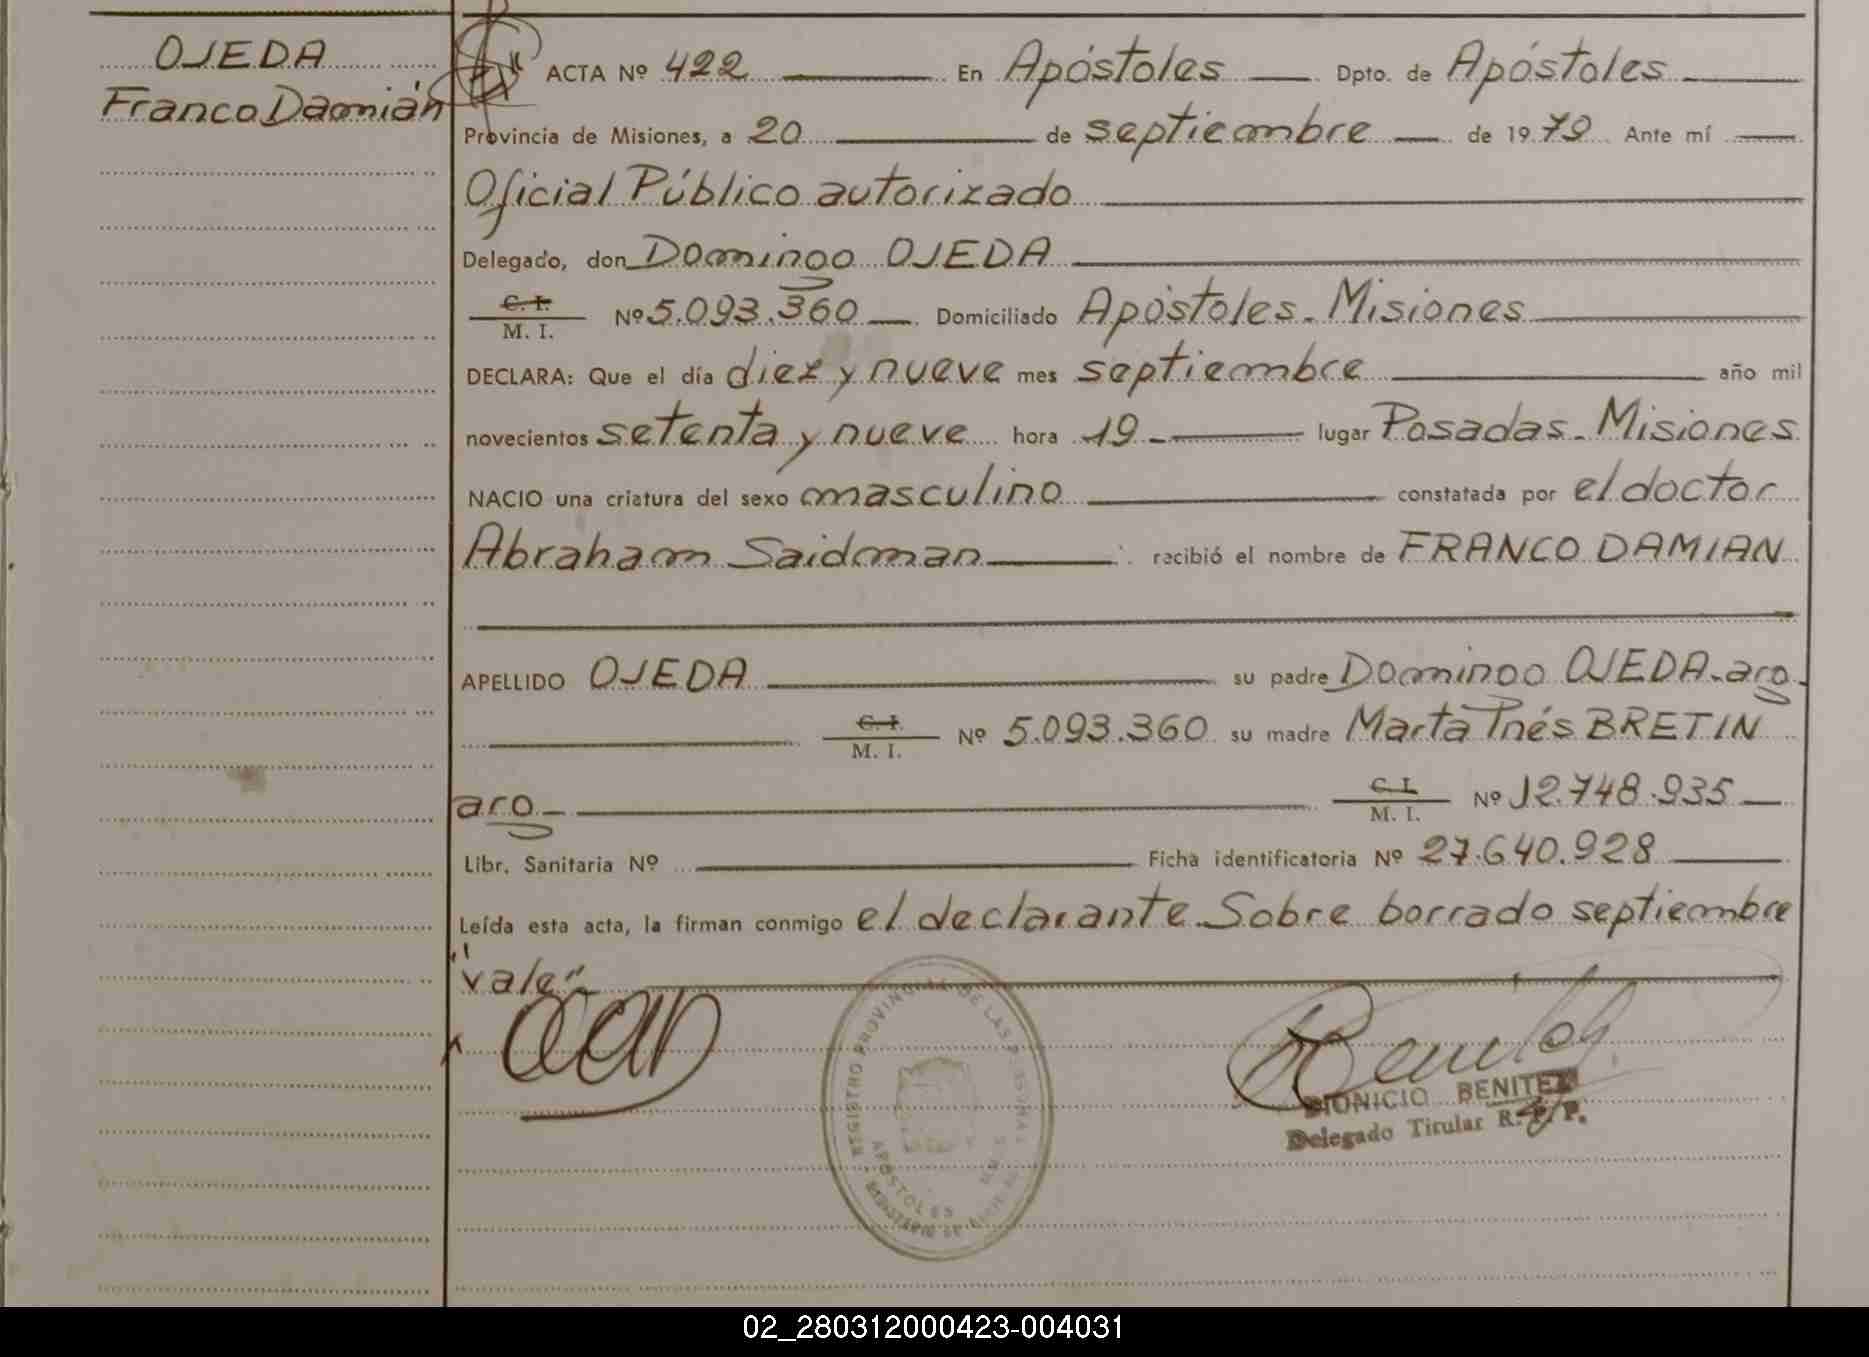 OJEDA
Franco Damián
ACTA Nº 422 En Apóstoles Dpto. de Apóstoles
Provincia de Misiones, a 20 de septiembre de 1979 Ante mí
Oficial Público autorizado
Delegado, don Domingo OJEDA
C. I.
M. I. Nº 5.093.360 Domiciliado Apóstoles-Misiones
DECLARA: Que el día diez y nueve mes septiembre año mil
novecientos setenta y nueve hora 19 lugar Posadas-Misiones
NACIO una criatura del sexo masculino constatada por el doctor
Abraham Saidman recibió el nombre de FRANCO DAMIAN
APELLIDO OJEDA su padre Domingo OJEDA-arg.
C. I.
M. I. Nº 5.093.360 su madre Marta Inés BRETIN
arg-
C. I.
M. I. Nº 12.748.935
Libr. Sanitaria Nº Ficha identificatoria Nº 27.640.928
Leída esta acta, la firman conmigo el declarante. Sobre borrado septiembre
"vale"
REGISTRO PROVINCIAL DE LAS PERSONAS
APOSTOLES
DIONICIO BENITEZ
Delegado Titular R. P. P.
02_280312000423-004031